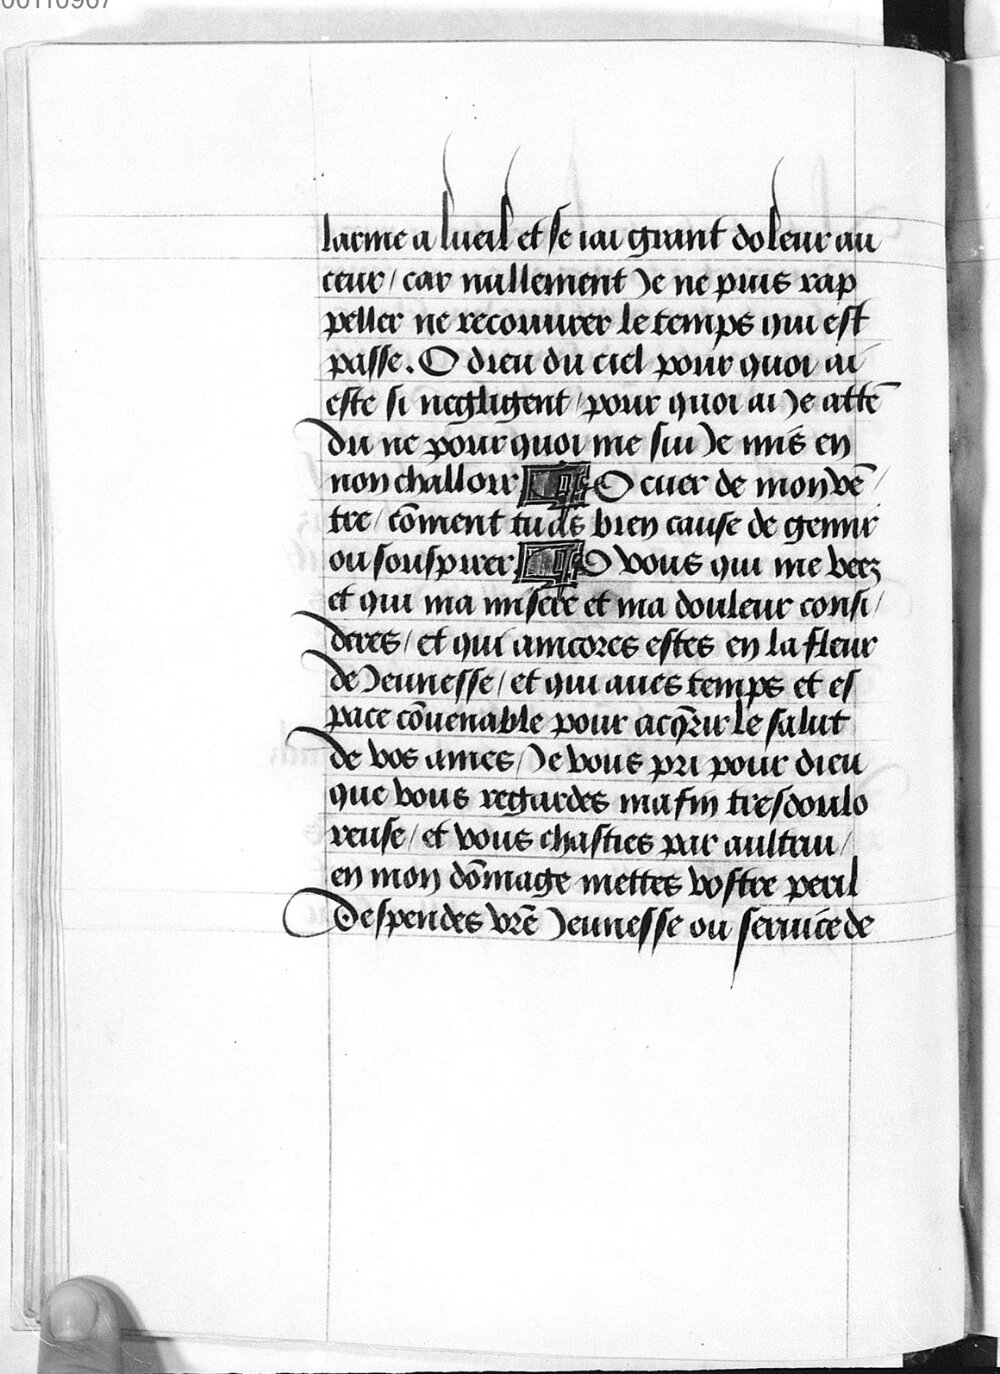 00110907
larme a lueil et se iai grant doleur au
ceur / car nullement Je ne puis rap
peller ne recouurer le temps qui est
passe. O dieu du ciel pour quoi ai
este si negligent / pour quoi ai Je attē
du ne pour quoi me sui Je mis en
non challoir O cuer de mon vē /
tre / cōment tu as bien cause de gemir
ou souspirer O vous qui me veez
et qui ma misere et ma douleur consi /
deres / et qui aincores estes en la fleur
de Jeunesse / et qui aues temps et es
pace cōuenable pour acq̄rir le salut
de vos ames / Je vous pri pour dieu
que vous regardes ma fin tresdoulo
reuse / et vous chasties par aultrui /
en mon dōmage mettes vostre peril
Despendes vr̄e Jeunesse ou seruice de